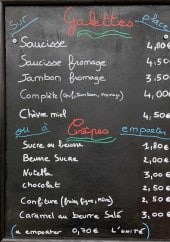 sur Galettes place
Saucisse 4,00€
Saucisse fromage 4,50
Jambon fromage 3,50
Complète (œuf, Jambon, fromage) 4,50
Chèvre miel 4,50
ou à Crêpes emporter
Sucre ou beurre 1,80€
Beurre Sucre 2,00€
Nutella 3,00€
chocolat 2,50€
Confiture 2,50€
Caramel au beurre Salé 3,00€
(a emporter 0,70€ L'UNITÉ)